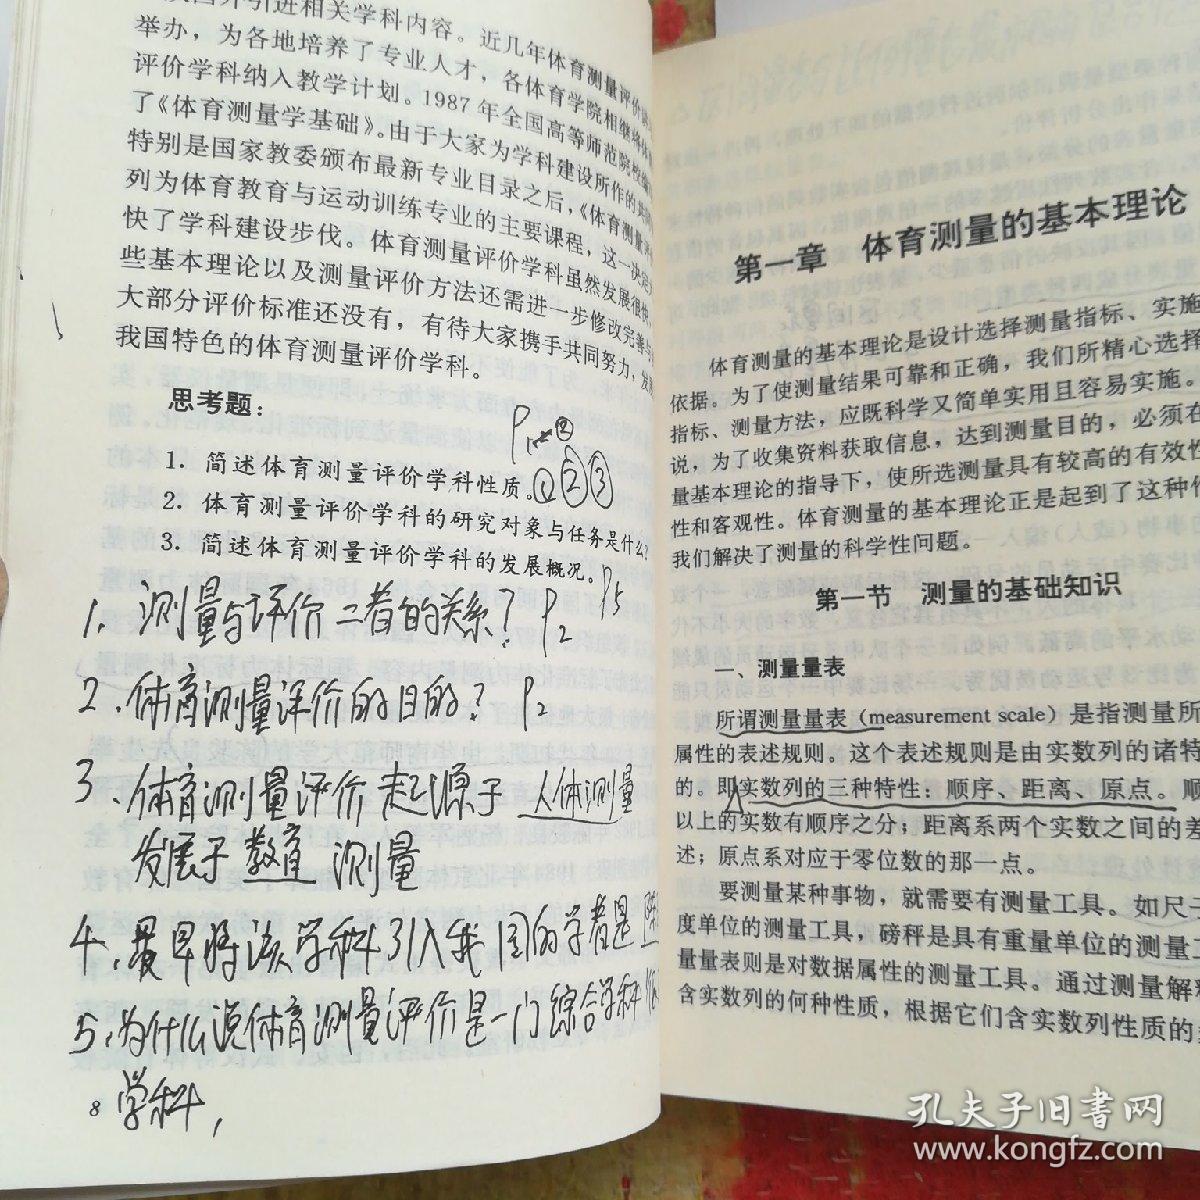 国外引进相关学科内容。近几年体育测量评价
举办，为各地培养了专业人才，各体育学院相继将体
评价学科纳入教学计划。1987年全国高等师范院校
了《体育测量学基础》。由于大家为学科建设所作的
特别是国家教委颁布最新专业目录之后，《体育测量
列为体育教育与运动训练专业的主要课程，这一决定
快了学科建设步伐。体育测量评价学科虽然发展很快，
些基本理论以及测量评价方法还需进一步修改完善与
大部分评价标准还没有，有待大家携手共同努力，发
我国特色的体育测量评价学科。
思考题：
1. 简述体育测量评价学科性质。①②③
2. 体育测量评价学科的研究对象与任务是什么？
3. 简述体育测量评价学科的发展概况。P5
1. 测量与评价二者的关系？P2
2. 体育测量评价的目的？P2
3、体育测量评价起源于人体测量
发展于教育测量
4、最早将该学科引入我国的学者是
5、为什么说体育测量评价是一门综合学科
学科，
8
第一章 体育测量的基本理论
体育测量的基本理论是设计选择测量指标、实施
依据。为了使测量结果可靠和正确，我们所精心选择
指标、测量方法，应既科学又简单实用且容易实施。
说，为了收集资料获取信息，达到测量目的，必须在
量基本理论的指导下，使所选测量具有较高的有效性
性和客观性。体育测量的基本理论正是起到了这种作
我们解决了测量的科学性问题。
第一节 测量的基础知识
一、测量量表
所谓测量量表（measurement scale）是指测量所
属性的表述规则。这个表述规则是由实数列的诸特
的。即实数列的三种特性：顺序、距离、原点。顺
以上的实数有顺序之分；距离系两个实数之间的差
述；原点系对应于零位数的那一点。
要测量某种事物，就需要有测量工具。如尺子
度单位的测量工具，磅秤是具有重量单位的测量工
量量表则是对数据属性的测量工具。通过测量解释
含实数列的何种性质，根据它们含实数列性质的
孔夫子旧书网
www.kongfz.com